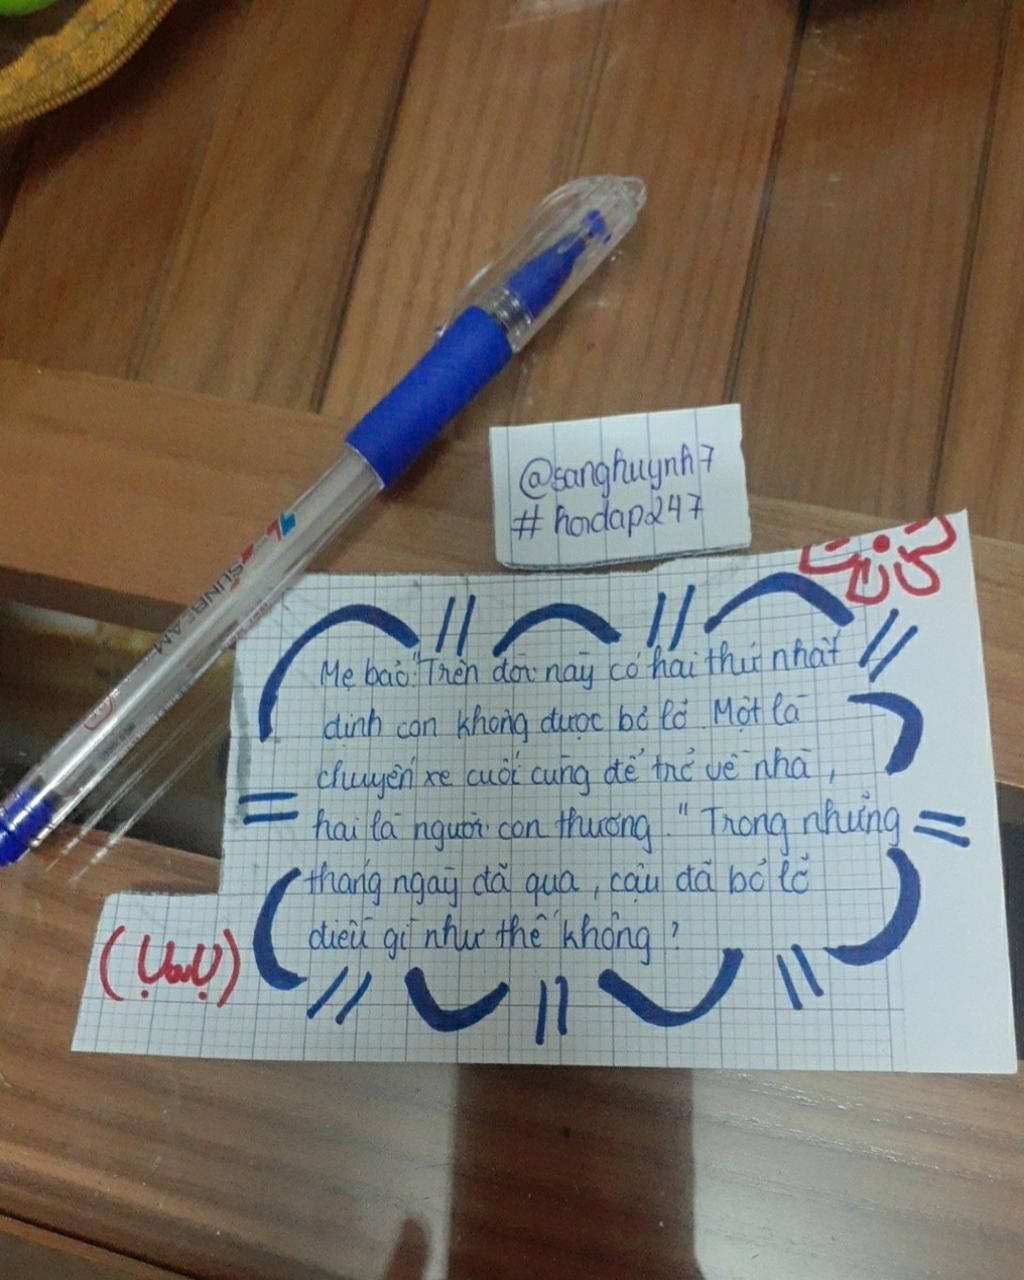 @sanghuynh7
# hoidap247
SUNBEAM
Mẹ bảo: "Trên đời này có hai thứ nhất
định con không được bỏ lỡ. Một là
chuyến xe cuối cùng để trở về nhà,
hai là người con thương." Trong những
tháng ngày đã qua, cậu đã bỏ lỡ
điều gì như thế không?
(UwU)